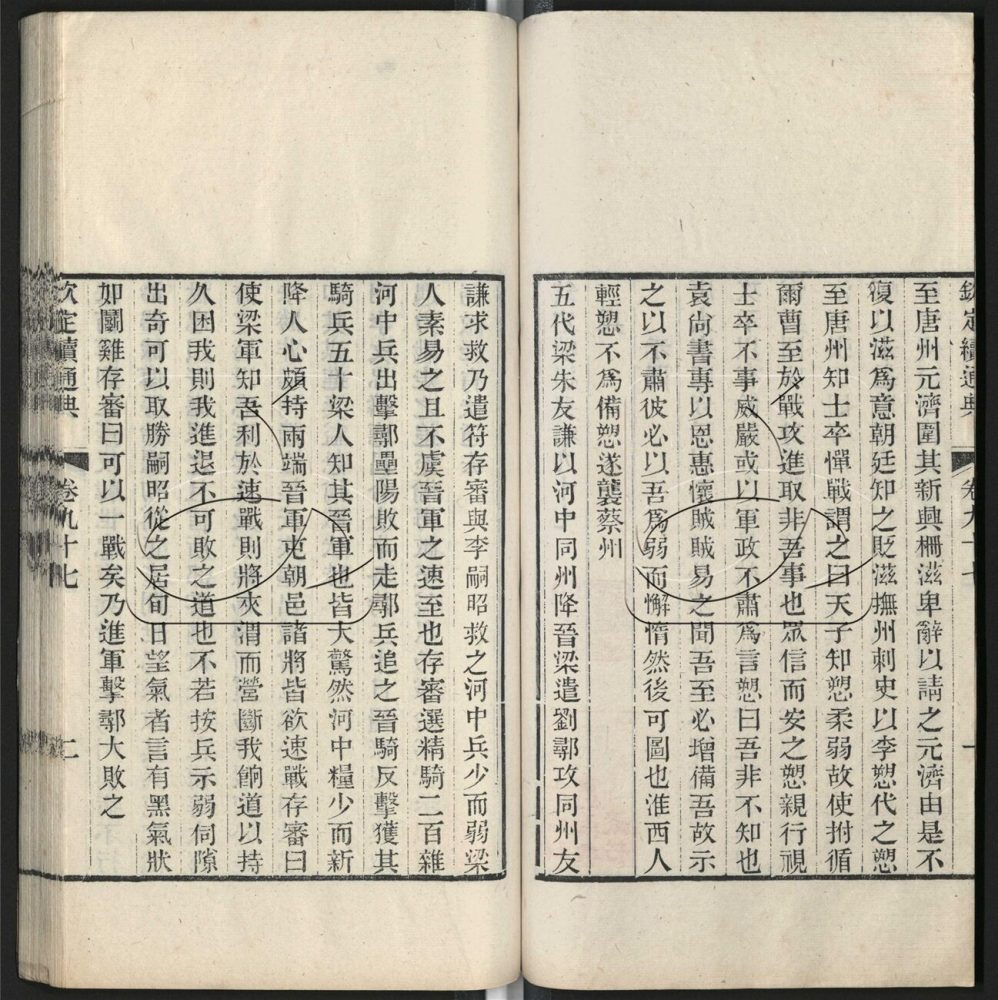 欽定續通典 卷九十七 一
至唐州元濟圍其新興柵滋卑辭以請之元濟由是不
復以滋爲意朝廷知之貶滋撫州刺史以李愬代之愬
至唐州知士卒憚戰謂之曰天子知愬柔弱故使拊循
爾曹至於戰攻進取非吾事也眾信而安之愬親行視
士卒不事威嚴或以軍政不肅爲言愬曰吾非不知也
袁尚書專以恩惠懷賊賊易之聞吾至必增備吾故示
之以不肅彼必以吾爲弱而懈惰然後可圖也淮西人
輕愬不爲備愬遂襲蔡州
五代梁朱友謙以河中同州降晉梁遣劉鄩攻同州友
謙求救乃遣符存審與李嗣昭救之河中兵少而弱梁
人素易之且不虞晉軍之速至也存審選精騎二百雜
河中兵出擊鄩壘陽敗而走鄩兵追之晉騎反擊獲其
騎兵五十梁人知其晉軍也皆大驚然河中糧少而新
降人心頗持兩端晉軍屯朝邑諸將皆欲速戰存審曰
使梁軍知吾利於速戰則將夾渭而營斷我餉道以持
久困我則我進退不可敗之道也不若按兵示弱伺隙
出奇可以取勝嗣昭從之居旬日望氣者言有黑氣狀
如鬭雞存審曰可以一戰矣乃進軍擊鄩大敗之
欽定續通典 卷九十七 二